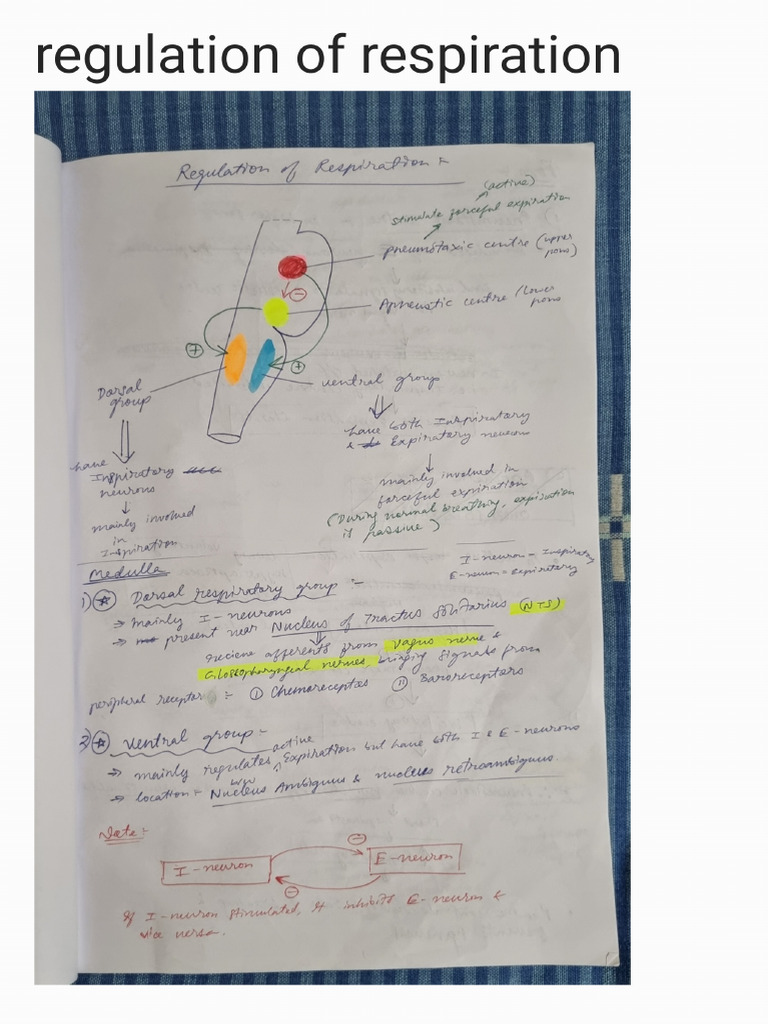 regulation of respiration
Regulation of Respiration :-
(active)
stimulate forceful expiration
pneumotaxic centre (upper
pons)
Apneustic centre (lower
pons
Dorsal
group
ventral group
have both Inspiratory
& Expiratory neurons
have
Inspiratory
neurons
mainly involved
in
Inspiration
mainly involved in
forceful expiration
(During normal breathing, expiration
is passive)
I-neuron = Inspiratory
E-neuron = Expiratory
Medulla
1) Dorsal respiratory group :-
→ mainly I-neurons
→ present near Nucleus of Tractus Solitarius (NTS)
recieve afferents from vagus nerve &
Glossopharyngeal nerves, bringing signals from
peripheral receptor :- (i) Chemoreceptos (ii) Baroreceptors
2) Ventral group :-
active
→ mainly regulates Expiration but have both I & E-neurons
→ location :- Nucleus Ambiguus & nucleus retroambiguus.
Note :-
⊖
I-neuron E-neuron
⊖
If I-neuron stimulated, it inhibits E-neuron &
vice versa.